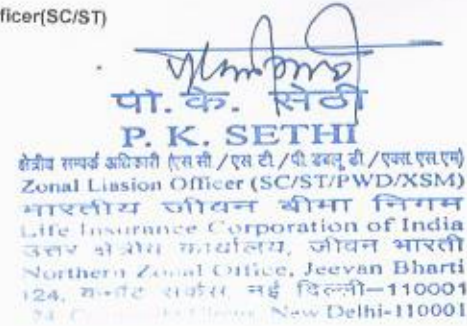 ficer(SC/ST)
पी. के. सेठी
P. K. SETHI
क्षेत्रीय सम्पर्क अधिकारी (एस.सी/एस टी./पी.डबलू.डी/एक्स.एस.एम)
Zonal Liasion Officer (SC/ST/PWD/XSM)
भारतीय जीवन बीमा निगम
Life Insurance Corporation of India
उत्तर क्षेत्रीय कार्यालय, जीवन भारती
Northern Zonal Office, Jeevan Bharti
124, कनॉट सर्कस, नई दिल्ली-110001
New Delhi-110001